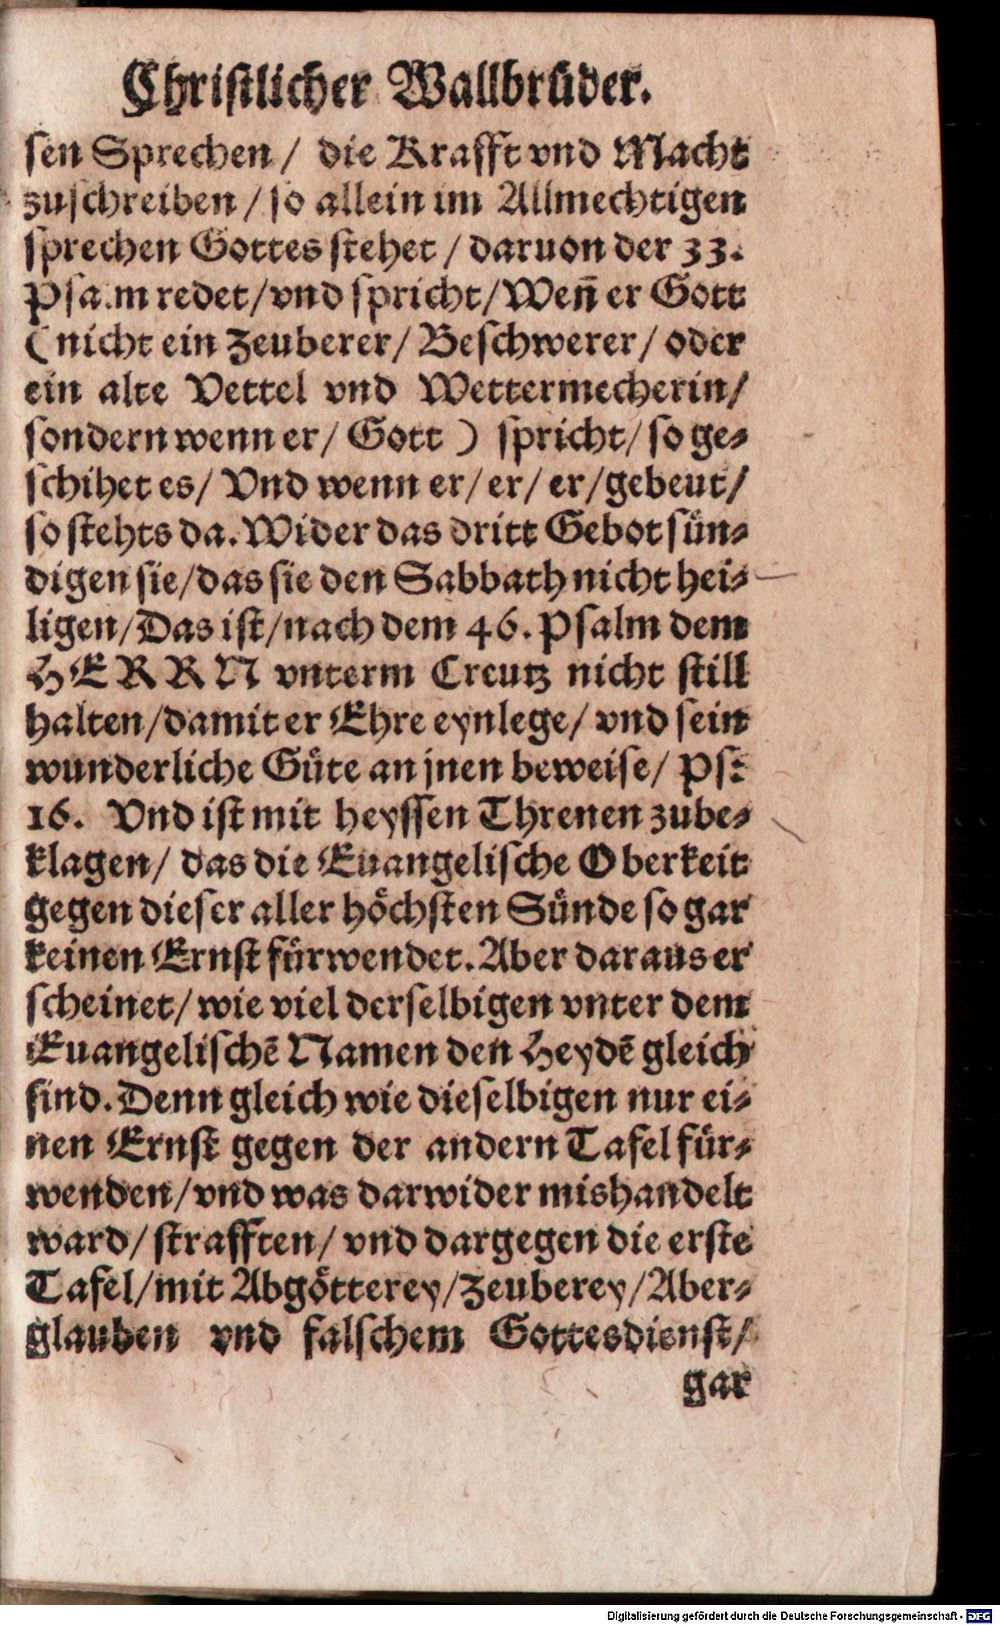 Christlicher Wallbrüder.
sen Sprechen / die Krafft vnd Macht
zuschreiben / so allein im Allmechtigen
sprechen Gottes stehet / daruon der 33.
Psa.m redet/vnd spricht/Weñ er Gott
( nicht ein Zeuberer/ Beschwerer/ oder
ein alte Vettel vnd Wettermecherin/
sondern wenn er/ Gott ) spricht/ so ge-
schihet es/ Vnd wenn er/ er/ er/gebeut/
so stehts da. Wider das dritt Gebot sün-
digen sie/das sie den Sabbath nicht hei-
ligen/Das ist/nach dem 46. Psalm dem
HERRN vnterm Creutz nicht still
halten/damit er Ehre eynlege/ vnd sein
wunderliche Güte an jnen beweise/ Ps:
16. Vnd ist mit heyssen Threnen zube-
klagen/ das die Euangelische Oberkeit
gegen dieser aller höchsten Sünde so gar
keinen Ernst fürwendet. Aber daraus er
scheinet/ wie viel derselbigen vnter dem
Euangelischē Namen den Heydē gleich
sind. Denn gleich wie dieselbigen nur ei-
nen Ernst gegen der andern Tafel für-
wenden/vnd was darwider mishandelt
ward/ strafften/ vnd dargegen die erste
Tafel/mit Abgötterey/Zeuberey/Aber-
glauben vnd falschem Gottesdienst/
gar
Digitalisierung gefördert durch die Deutsche Forschungsgemeinschaft - DFG